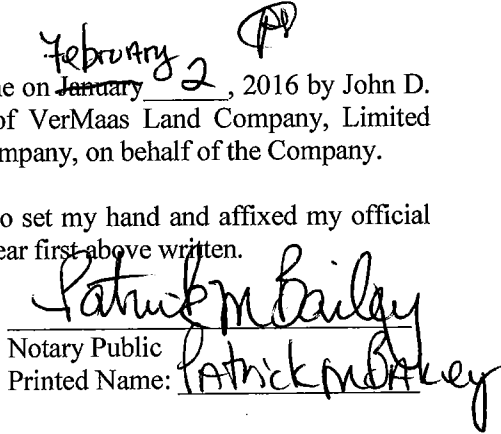 February
ne on January 2, 2016 by John D.
of VerMaas Land Company, Limited
mpany, on behalf of the Company.
o set my hand and affixed my official
ear first above written.
Patrick M Bailey
Notary Public
Printed Name: Patrick M Bailey